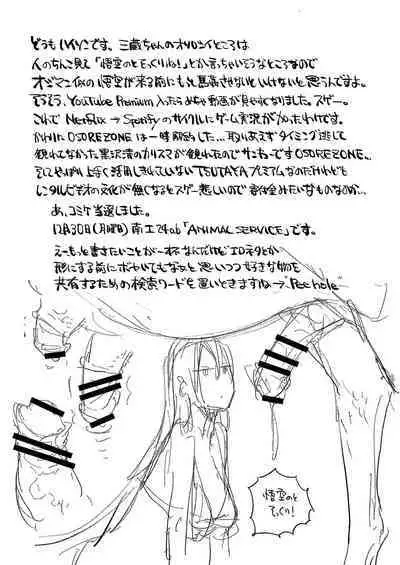 どうもハイソンです。三蔵ちゃんのオソロシイところは
人のちんこ見て「悟空のとそっくりね!」とか言っちゃいそうなところなので
オジマン似の悟空が来る前にもっと させないといけないと思うんですよ。
そうそう、YouTube Premium入ったらめちゃ動画が見やすくなりました。スゲー。
これで Netflix → Spotify のサイクルにゲーム実況が加わったわけです。
かわりに OSOREZONE は一時解約した… 取り敢えずタイミング逃して
観れてなかった黒沢清のカリスマが観れたのでサンキューです OSOREZONE…
そしてやっぱり上手く活用しきれていない TSUTAYA プレミアムなのだけれども
レンタルビデオの文化が無くなるとスゲー悲しいので みたいなものなのか…
あ、コミケ当選しました。
12月30日(月曜日) 南エ24ab「ANIMAL SERVICE」です。
えーもっと書きたいことが一杯なんだけどエロネタとか
形にする前にボヤいてもなァと思いつつ好きな物を
共有するための検索ワードを置いときますね→ Pee hole
悟空のと
そっくり!